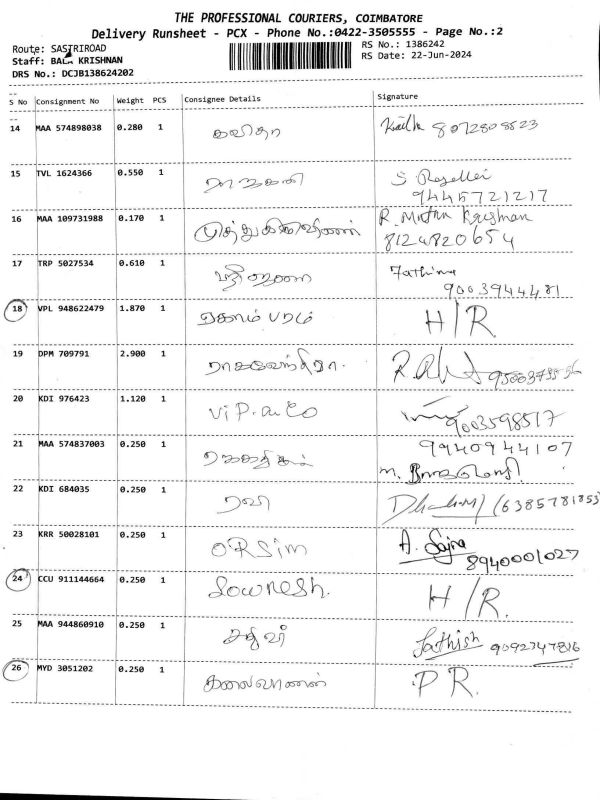 THE PROFESSIONAL COURIERS, COIMBATORE
Delivery Runsheet - PCX - Phone No.:0422-3505555 - Page No.:2
Route: SASTRIROAD
RS No.: 1386242
Staff: BALA KRISHNAN
RS Date: 22-Jun-2024
DRS No.: DCJB138624202
S No Consignment No Weight PCS Consignee Details Signature
14 MAA 574898038 0.280 1 கவிதா 8072808523
15 TVL 1624366 0.550 1 S
9445721217
16 MAA 109731988 0.170 1 முத்துகிருஷ்ணன் R. Muthu Krishnan
8124820654
17 TRP 5027534 0.610 1 Fathima
9003944481
18 VPL 948622479 1.870 1 ஏகாம்பரம் H/R
19 DPM 709791 2.900 1 ராகவேந்திரா.
20 KDI 976423 1.120 1 ViP. auto 9003598517
21 MAA 574837003 0.250 1 9940944107
M.
22 KDI 684035 0.250 1 ரவி (6385781853
23 KRR 50028101 0.250 1 ORSim A. Sajna
8940001027
24 CCU 911144664 0.250 1 Sowresh. H/R.
25 MAA 944860910 0.250 1 Sathish 9092747816
26 MYD 3051202 0.250 1 கலைவாணன் P R.